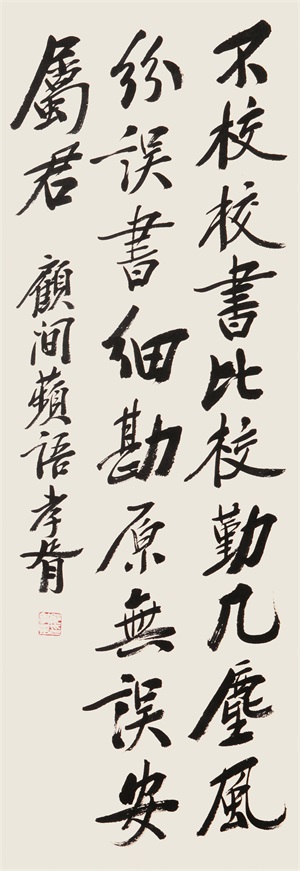 不校校書比校勤几塵風
紛誤書細勘原無誤安
屬君
顧澗蘋語孝胥